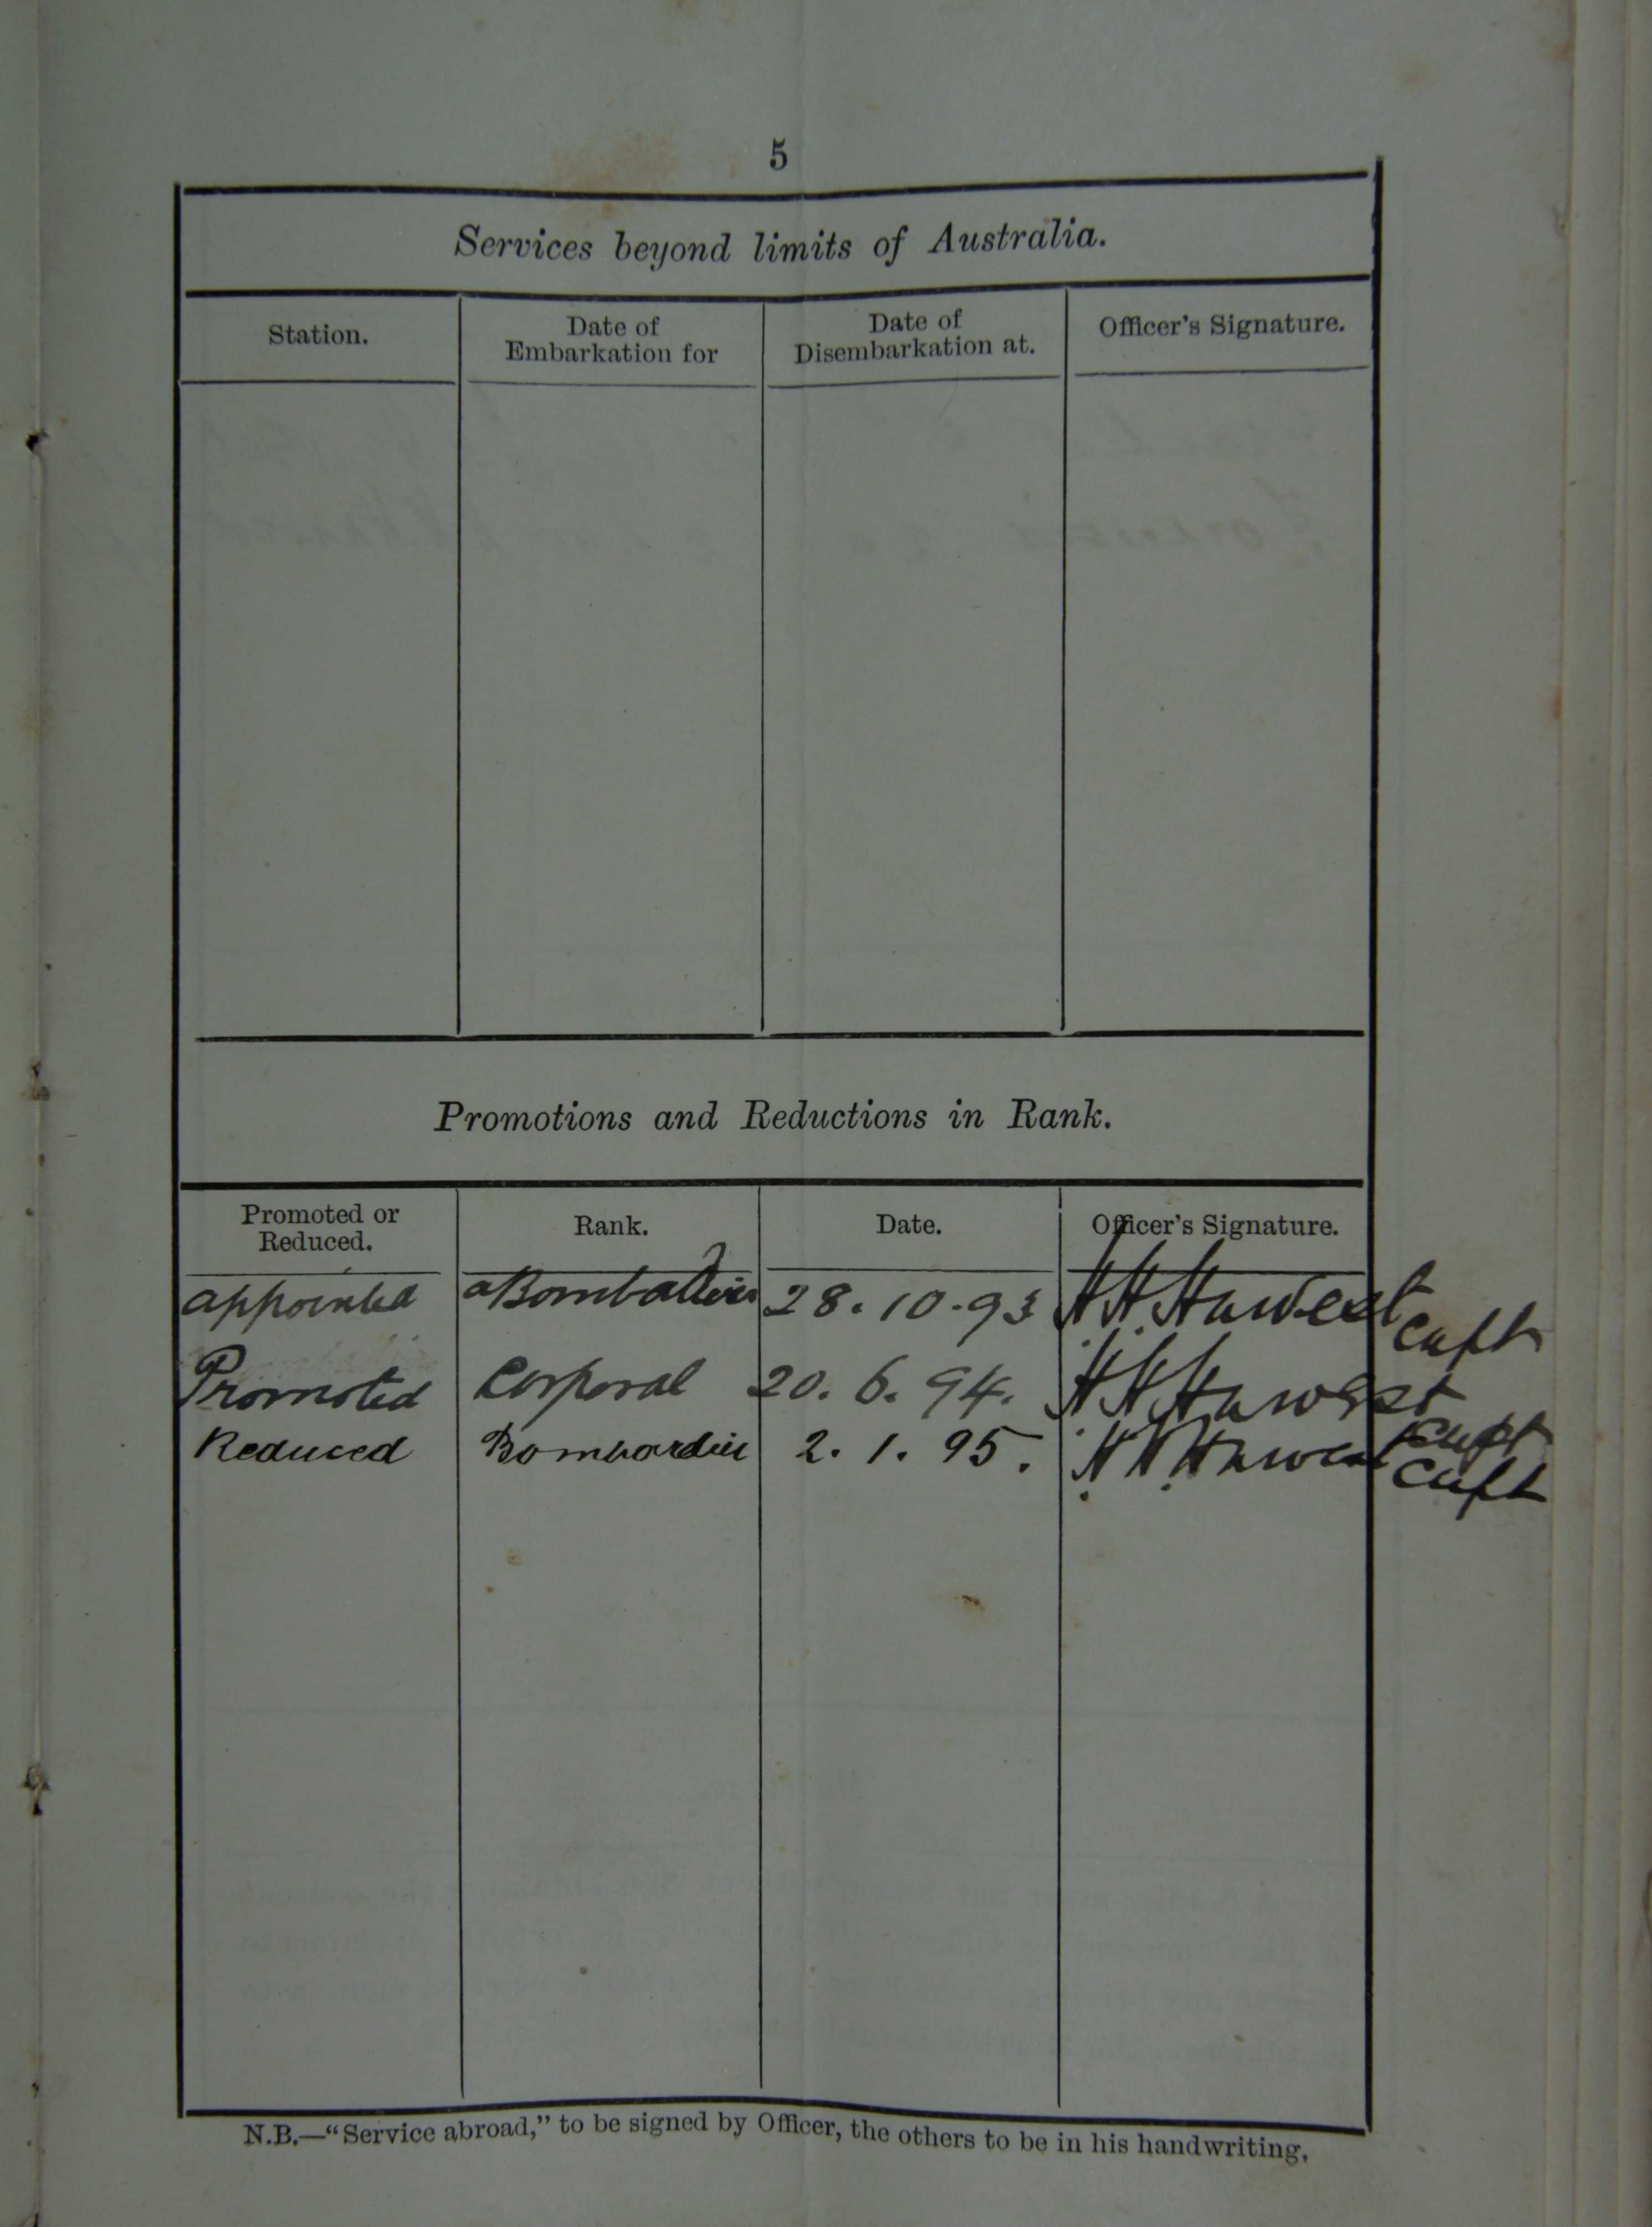 5
Services beyond limits of Australia.
Station. Date of Embarkation for Date of Disembarkation at. Officer's Signature.
Promotions and Reductions in Rank.
Promoted or Reduced. Rank. Date. Officer's Signature.
appointed 28.10.93 Capt
Promoted Corporal 20.6.94. Capt
Reduced Bombardier 2.1.95. Capt
N.B.—"Service abroad," to be signed by Officer, the others to be in his handwriting.